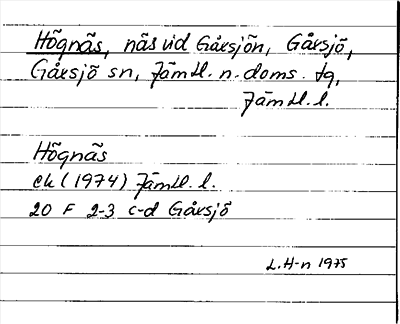 Högnäs, näs vid Gåxsjön, Gåxsjö,
Gåxsjö sn, Jämtl. n. doms. tg,
Jämtl. l.
Högnäs
ek (1974) Jämtl. l.
20 F 2-3 c-d Gåxsjö
L. H-n 1975